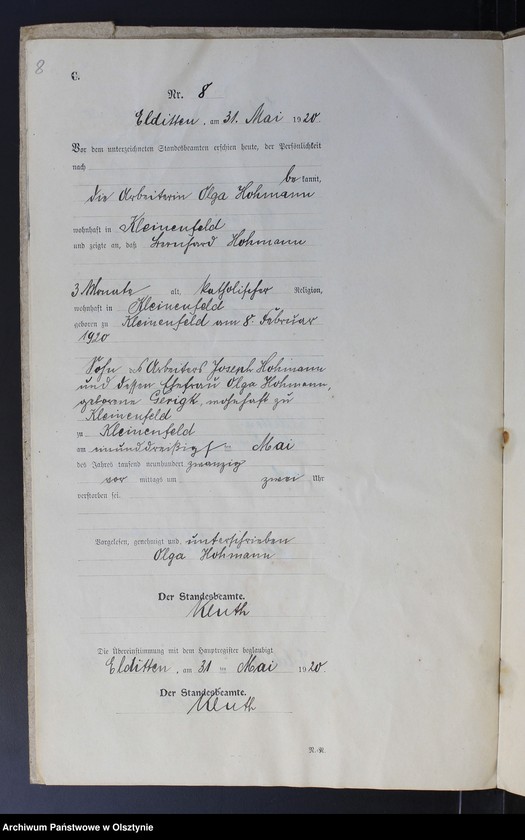 8
C.
Nr. 8
Elditten, am 31. Mai 1920.
Vor dem unterzeichneten Standesbeamten erschien heute, der Persönlichkeit
nach
bekannt,
die Arbeiterin Olga Hohmann
wohnhaft in Kleinenfeld
und zeigte an, daß Bernhard Hohmann
3 Monate alt, katholischer Religion,
wohnhaft in Kleinenfeld
geboren zu Kleinenfeld am 8. Februar
1920
Sohn des Arbeiters Joseph Hohmann
und dessen Ehefrau Olga Hohmann,
geborene Gerigk, wohnhaft zu
Kleinenfeld
zu Kleinenfeld
am ten Mai
des Jahres tausend neunhundert zwanzig
vor mittags um zwei Uhr
verstorben sei.
Vorgelesen, genehmigt und unterschrieben
Olga Hohmann
Der Standesbeamte.
Kluth
Die Übereinstimmung mit dem Hauptregister beglaubigt
Elditten, am 31 ten Mai 1920.
Der Standesbeamte.
Kluth
Archiwum Państwowe w Olsztynie